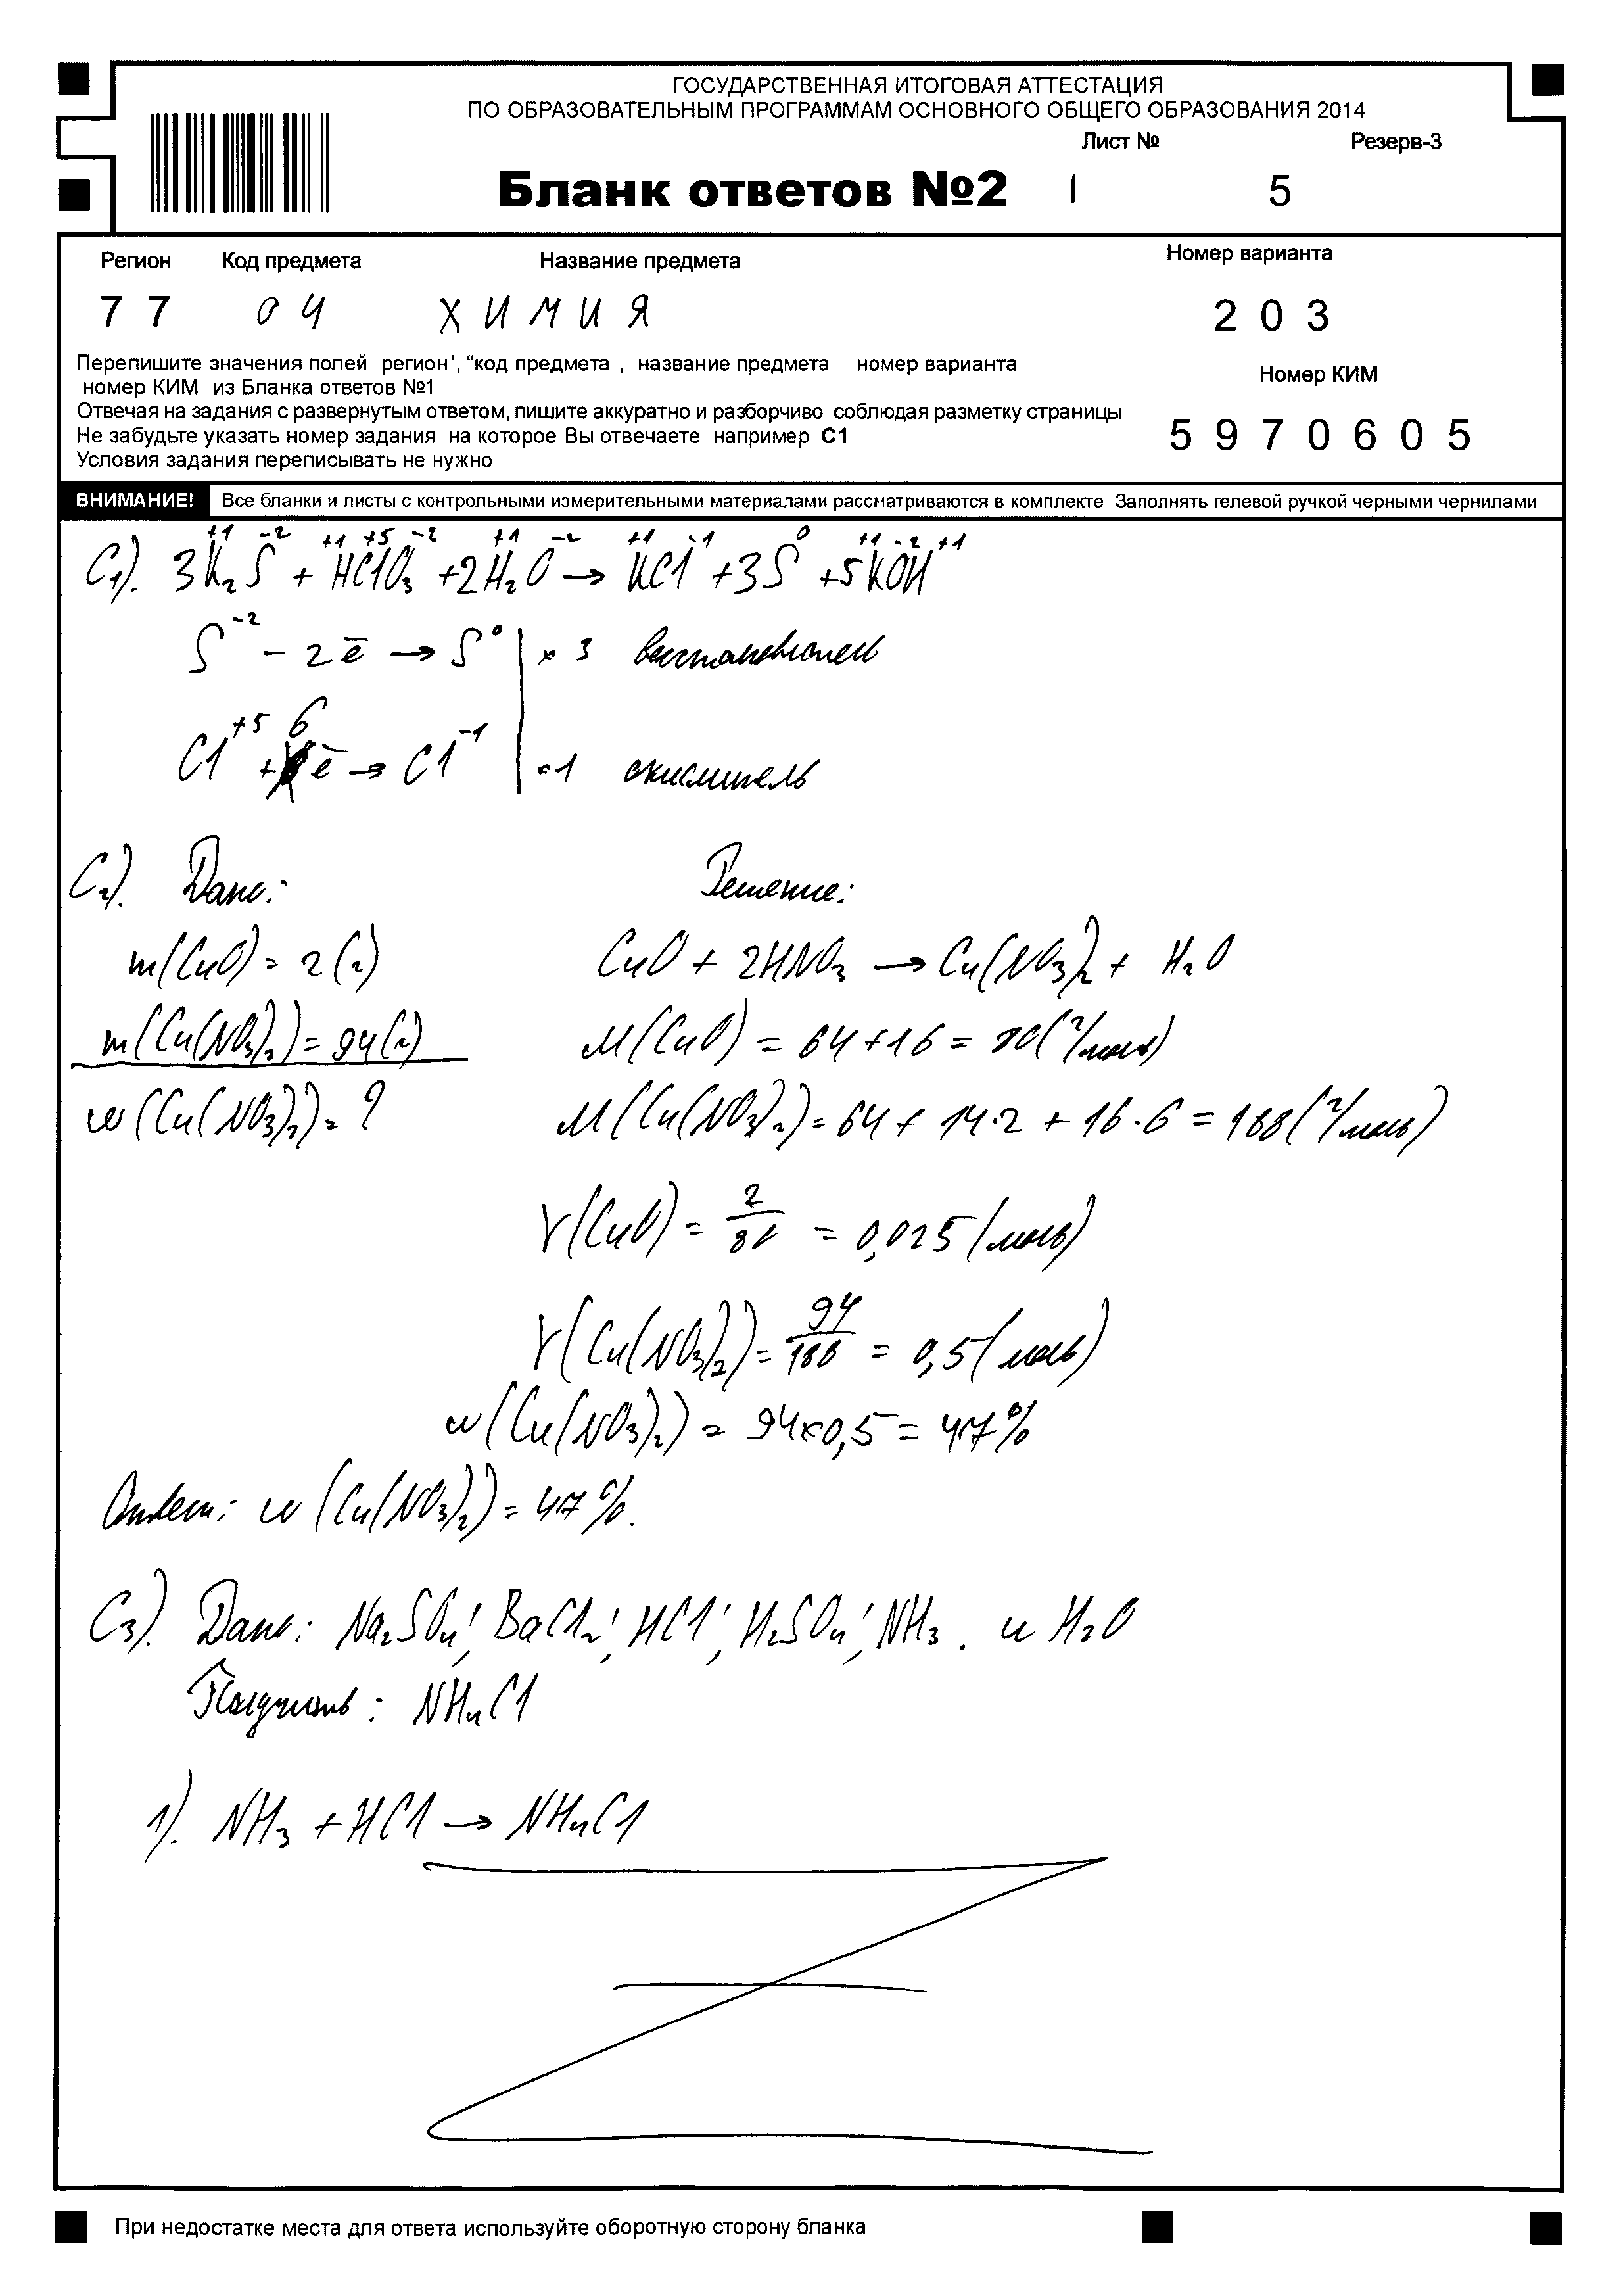 ГОСУДАРСТВЕННАЯ ИТОГОВАЯ АТТЕСТАЦИЯ
ПО ОБРАЗОВАТЕЛЬНЫМ ПРОГРАММАМ ОСНОВНОГО ОБЩЕГО ОБРАЗОВАНИЯ 2014
Лист № Резерв-3
Бланк ответов №2 1 5
Регион Код предмета Название предмета Номер варианта
77 04 ХИМИЯ 203
Перепишите значения полей регион', “код предмета , название предмета номер варианта
номер КИМ из Бланка ответов №1
Номер КИМ
Отвечая на задания с развернутым ответом, пишите аккуратно и разборчиво соблюдая разметку страницы
Не забудьте указать номер задания на которое Вы отвечаете например С1
Условия задания переписывать не нужно
5970605
ВНИМАНИЕ! Все бланки и листы с контрольными измерительными материалами рассматриваются в комплекте Заполнять гелевой ручкой черными чернилами
+1 -2 +1 +5 -2 +1 -2 +1 -1 0 +1 -2 +1
C₁). 3K₂S + HClO₃ + 2H₂O → KCl + 3S + 5KOH
S⁻² - 2ē → S⁰ | × 3 восстановитель
Cl⁺⁵ + 6ē → Cl⁻¹ | × 1 окислитель
C₂). Дано: Решение:
m(CuO) = 2(г) CuO + 2HNO₃ → Cu(NO₃)₂ + H₂O
m(Cu(NO₃)₂) = 94(г) M(CuO) = 64+16 = 80(г/моль)
w(Cu(NO₃)₂) = ? M(Cu(NO₃)₂) = 64 + 14·2 + 16·6 = 188(г/моль)
γ(CuO) = 2/80 = 0,025(моль)
γ(Cu(NO₃)₂) = 94/188 = 0,5(моль)
w(Cu(NO₃)₂) = 94×0,5 = 47%
Ответ: w(Cu(NO₃)₂) = 47%.
C₃). Дано: Na₂SO₄; BaCl₂; HCl; H₂SO₄; NH₃. и H₂O
Получить: NH₄Cl
1). NH₃ + HCl → NH₄Cl
При недостатке места для ответа используйте оборотную сторону бланка